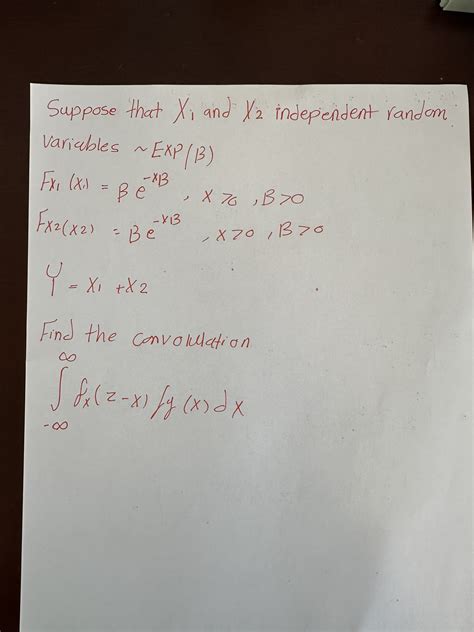 Suppose that X₁ and X₂ independent random
variables ~ EXP(β)
Fx₁(x₁) = βe^{-xβ} , x>0 , β>0
Fx₂(x₂) = βe^{-xβ} , x>0 , β>0
Y = x₁ + x₂
Find the convolulation
∫_{-∞}^{∞} fx(z-x) fy(x) dx